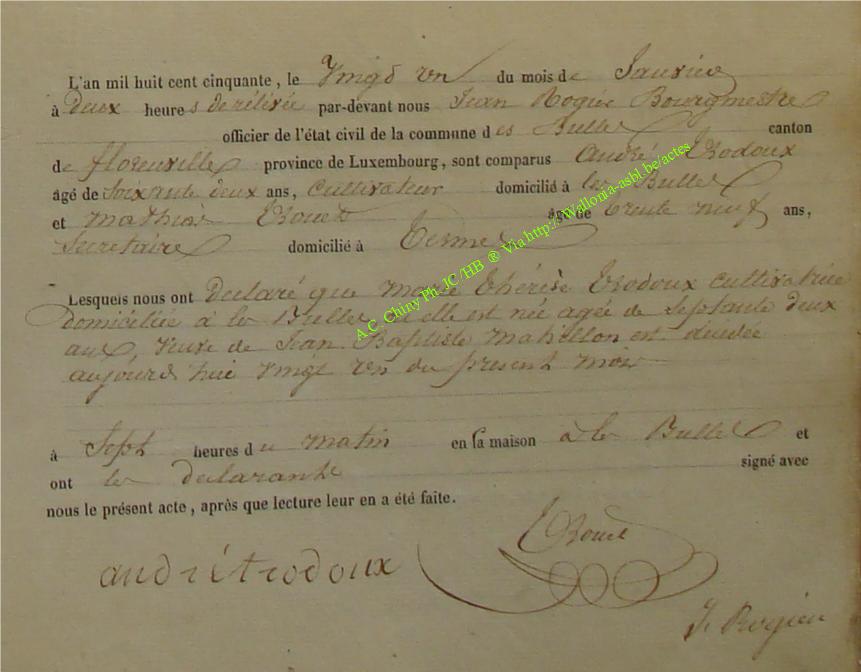 L'an mil huit cent cinquante, le Vingt un du mois de Janvier
à deux heures de rélévée par-devant nous Jean Rogier Bourgmestre
officier de l'état civil de la commune des Bulles canton
de florenville province de Luxembourg, sont comparus André Trodoux
âgé de Soixante deux ans, Cultivateur domicilié à les Bulles
et Mathias Trouet âgé de trente neuf ans,
Secretaire domicilié à Termes
Lesquels nous ont Declaré que Marie Thérèse Trodoux Cultivatrice
domiciliée à les Bulles elle est née agée de Septante deux
ans, veuve de Jean Baptiste Mahillon est décédée
aujourd hui vingt un du present mois
à Sept heures du matin en sa maison à les Bulles et
ont les declarants signé avec
nous le présent acte, après que lecture leur en a été faite.
Trouet
andré trodoux
J. Rogier
A.C. Chiny Ph. JC/HB ® Via http://wallonia-asbl.be/actes